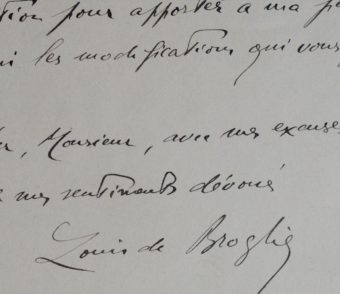 tion pour apporter à ma
les modifications qui vous
, Monsieur, avec mes excuses
mes sentiments dévoués
Louis de Broglie